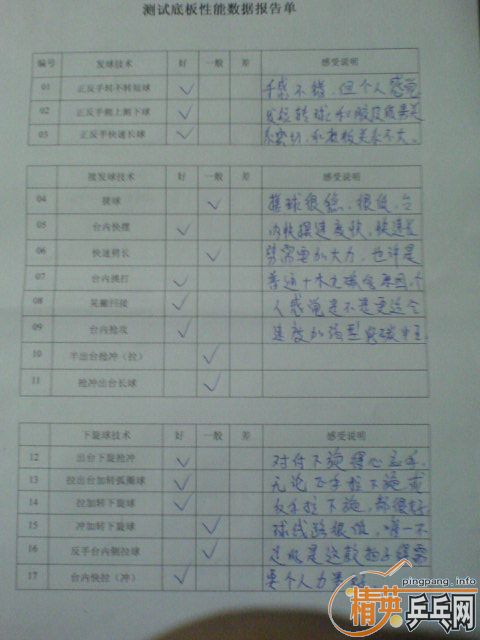 测试底板性能数据报告单
编号 发球技术 好 一般 差 感受说明
01 正反手转不转短球 ✓ 手感不错，但个人感觉
02 正反手侧上侧下球 ✓ 发短转球，和胶皮效果关
03 正反手快速长球 ✓ 系密切，和底板关系不大。
接发球技术 好 一般 差 感受说明
04 搓球 ✓ 搓球很稳，很低，台
05 台内快摆 ✓ 内快摆速度快，快速长
06 快速劈长 ✓ 劈需要加大力，也许是
07 台内挑打 ✓ 普通十木无碳 原因，个
08 晃撇拧接 ✓ 人感觉是不是更适合
09 台内抢攻 ✓ 速度加 型
10 半出台抢冲（拉） ✓
11 抢冲出台长球 ✓
下旋球技术 好 一般 差 感受说明
12 出台下旋抢冲 ✓ 对付下旋得心应手，
13 拉出台加转弧圈球 ✓ 无论正手拉下旋或
14 拉加转下旋球 ✓ 反手拉下旋，都很好
15 冲加转下旋球 ✓ 球线路很低，唯一不
16 反手台内侧拉球 ✓ 足就是这款拍子得需
17 台内快拉（冲） ✓ 要个人力量
pingpang.info
精英乒乓网